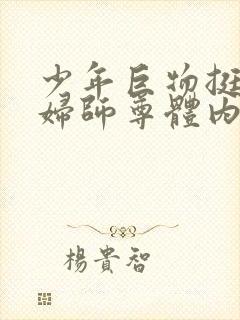 少年巨物挺
婦師尊體內
楊貴智